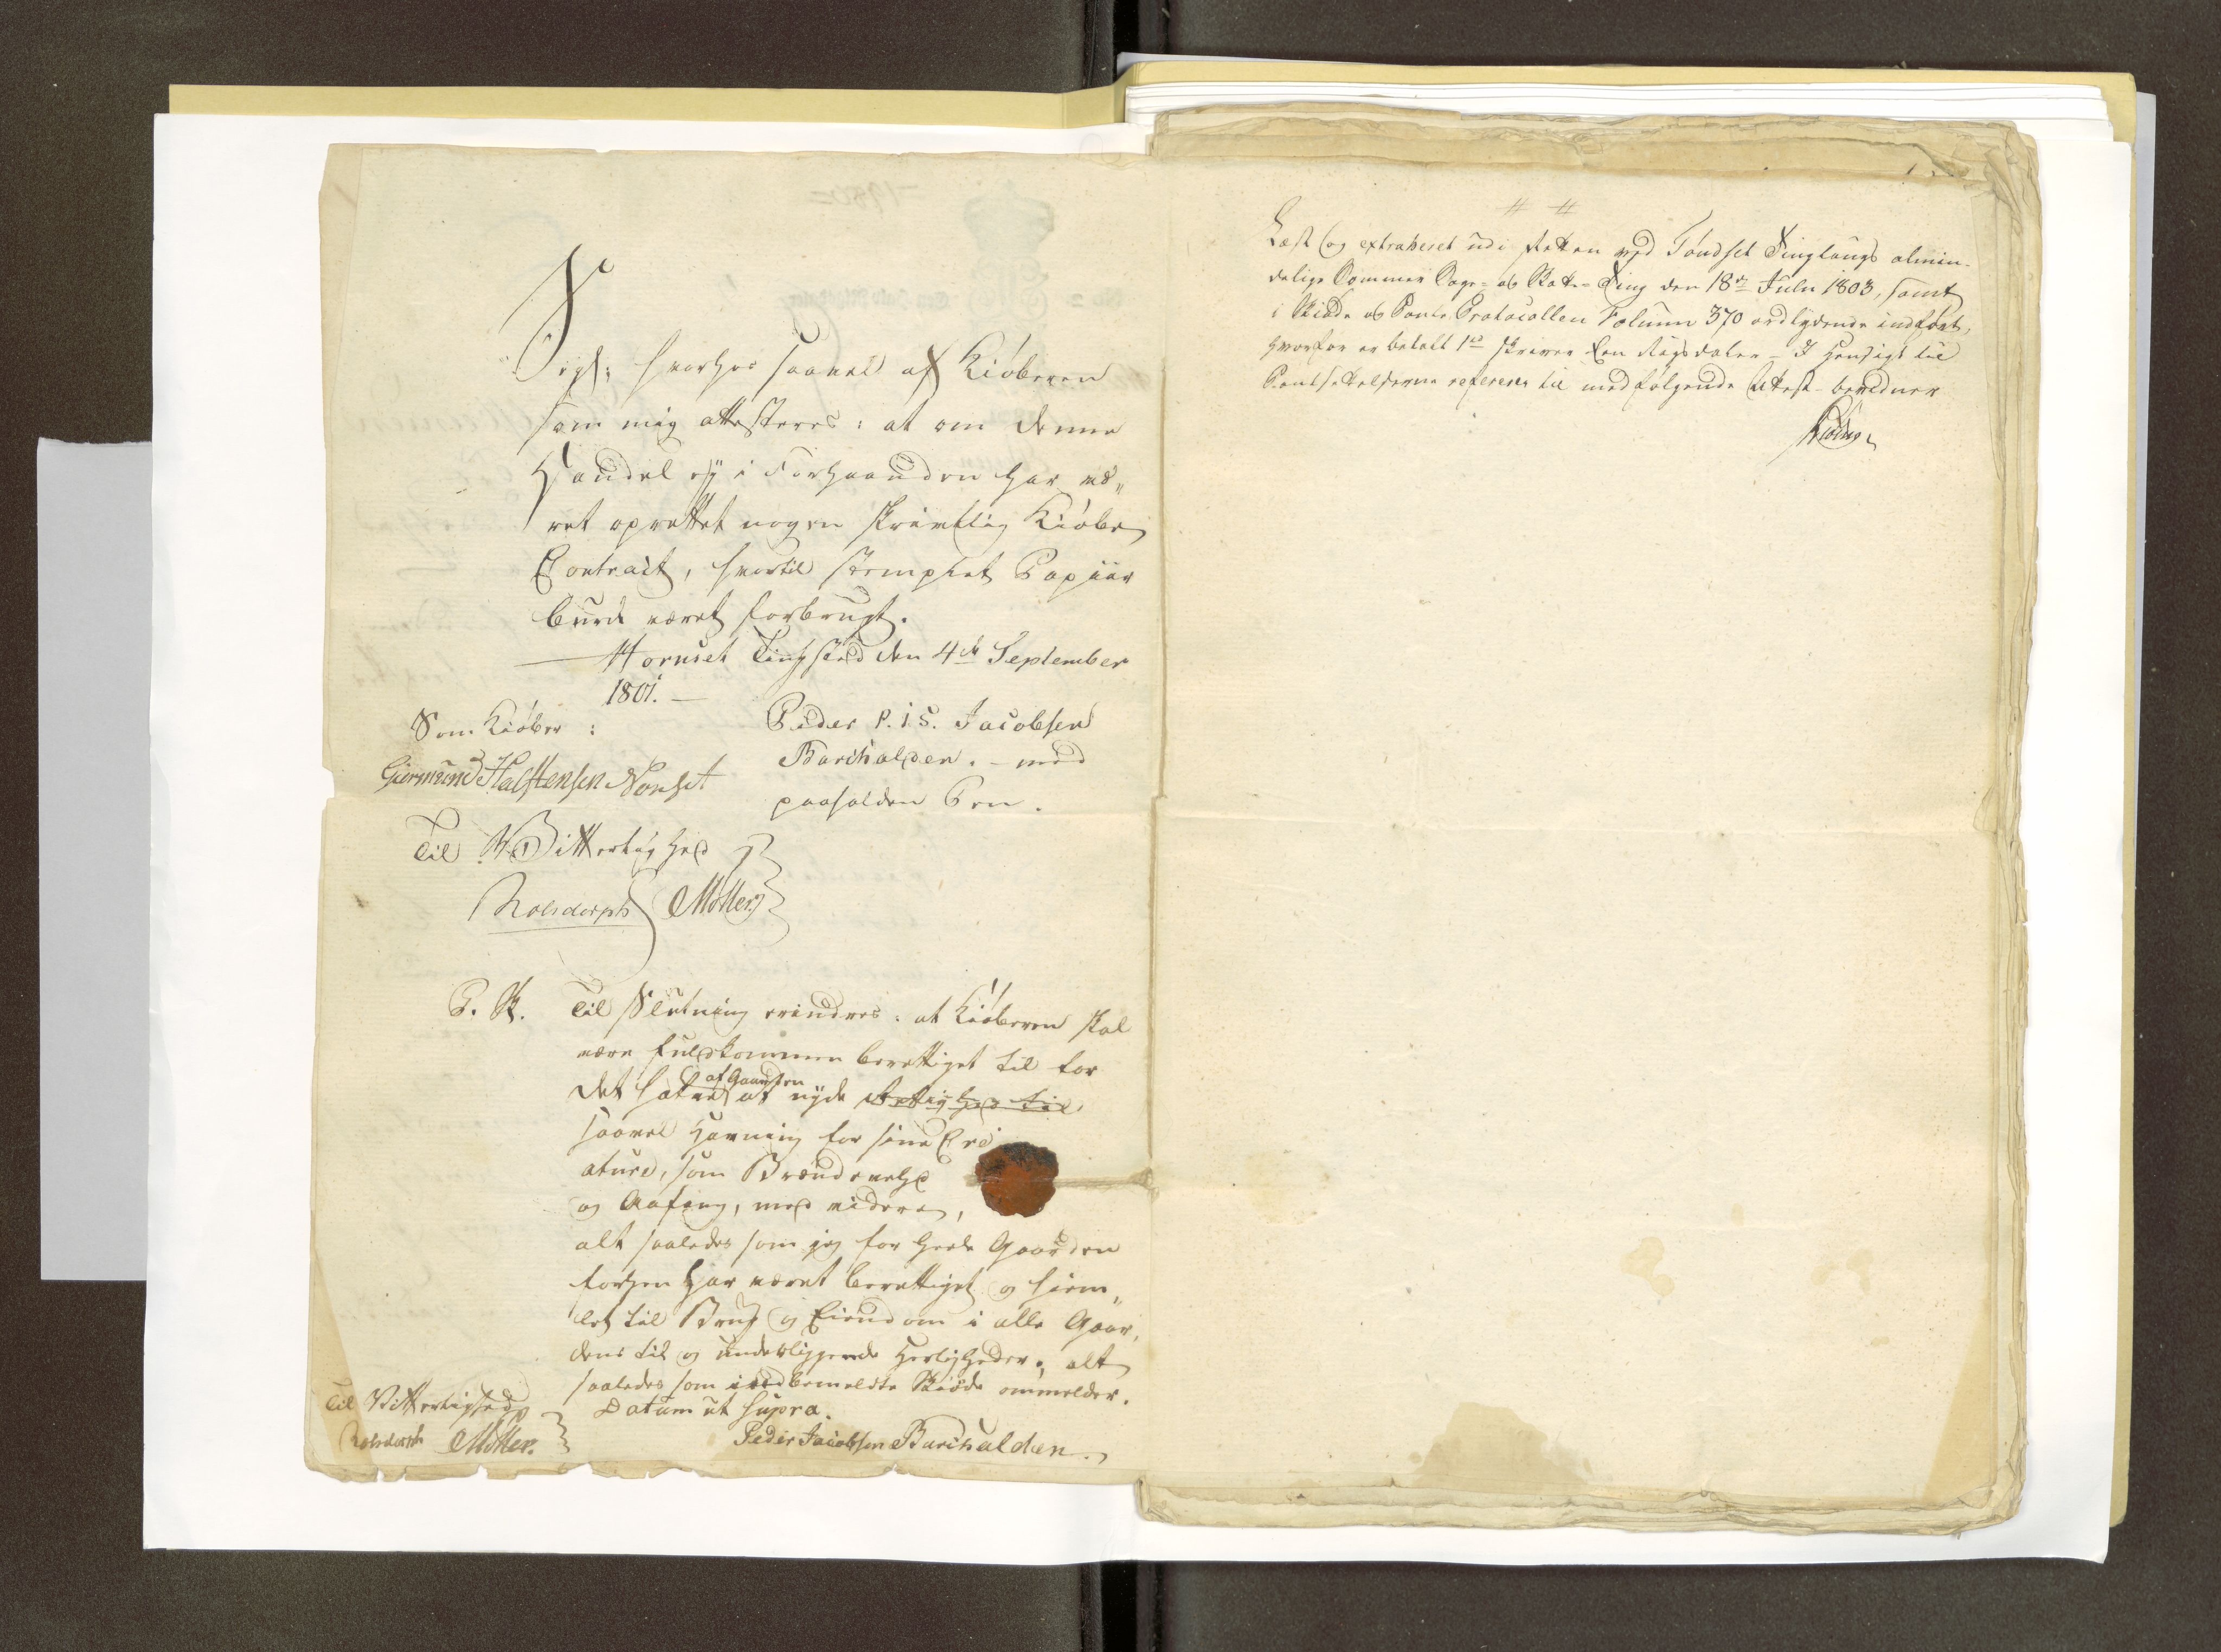 Segl; hvorhos saavel af Kiøberen
som mig attesteres: at om denne
Handel ey i Forhaanden har væ„
ret oprettet nogen skrivtlig Kiøbe
Contract, hvortil stemplet Papiir
burde været forbrugt.
Hornset Tingsted den 4de September
1801. —
Som Kiøber:
Giermund Halstensen Nonset
Peder P. i S. Jacobsen
Barchalden. – med
paaholden Pen.
Til Vitterlighed
Rolsdorph Møller
P. S. Til Slutning erindres: at Kiøberen skal
være fuldkommen berettiget til for
det halve af Gaarden at nyde Rettighed til
saavel Havning for sine Cre
ature, som Brændeveed
og Aafang, med videre,
alt saaledes som jeg for heele Gaarden
forhen har været berettiget og hiem„
let til Brug og Eiendom i alle Gaar„
dens til og underliggende Herligheder, alt
saaledes som bemeldte Skiøde ommelder.
Datum ut supra.
Peder Jacobsen Barchalden.
Til Vitterlighed
Rolsdorph Møller.
Læst og extraheret udi Retten ved Tøndset Tinglaugs almin-
delige Sommer Sage- og Skatte-Ting den 18de Julii 1803, samt
i Skiøde og Pante Protocollen Folium 370 ordlydende indført,
hvorfor er betalt 1ste skriver Een Rigsdaler – I Hensigt til
Pantsettelserne refereres til medfølgende Attest. bevidner